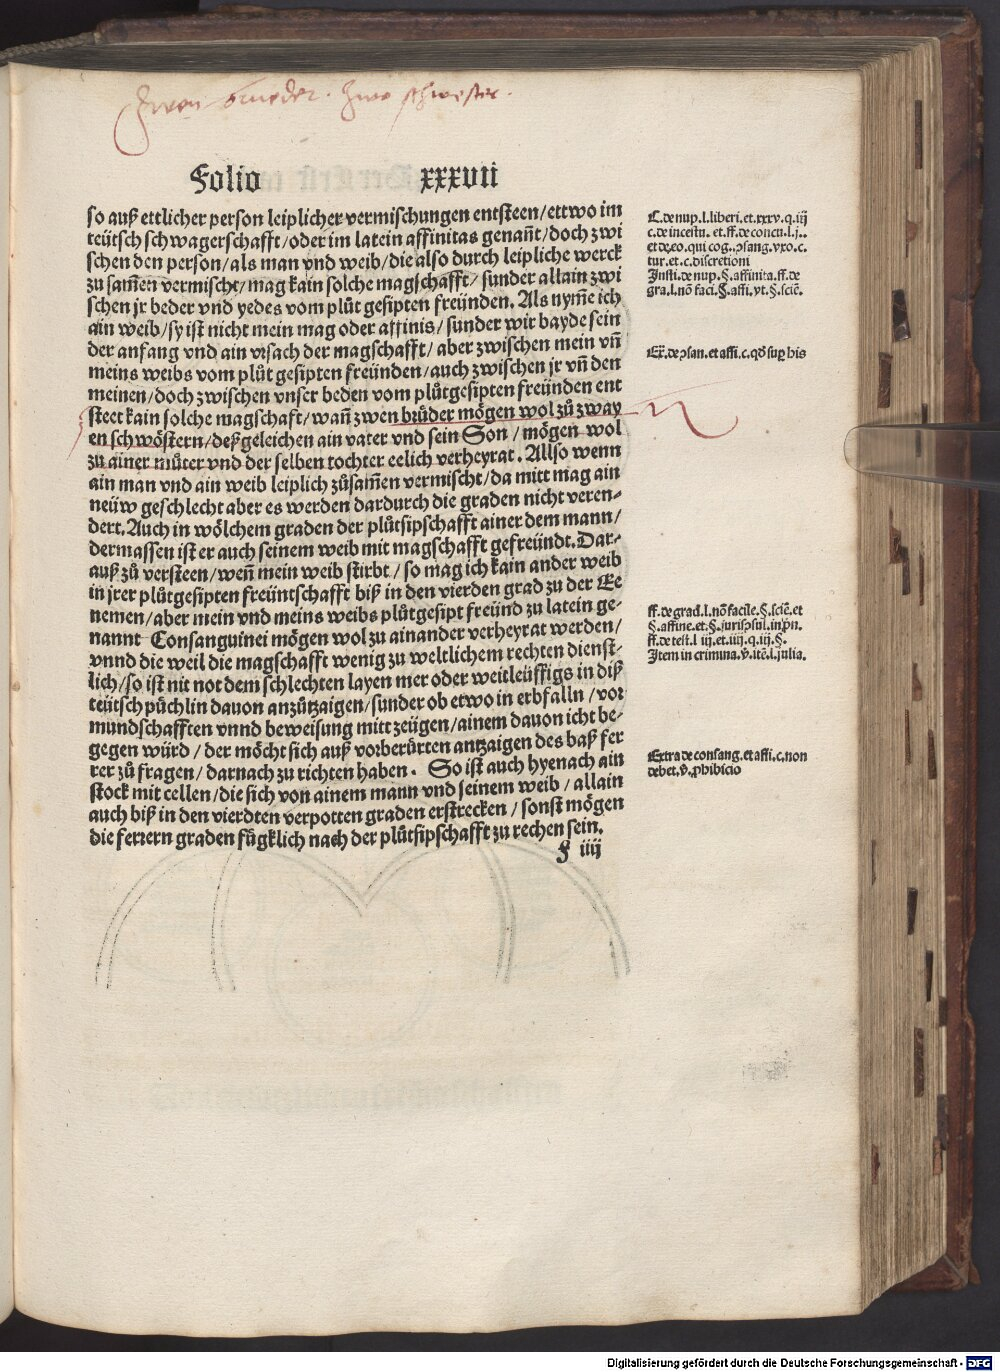 Zwen brueder. Zwo schwester.
Folio xxxvii
so auß ettlicher person leiplicher vermischungen entsteen/ettwo im
teütsch schwagerschafft/oder im latein affinitas genañt/doch zwi
schen den person/als man vnd weib/die also durch leipliche werck
zu sam̃en vermischt/mag kain solche magschafft/sunder allain zwi
schen jr beder vnd yedes vom plůt gesipten freünden. Als nym̃e ich
ain weib/sy ist nicht mein mag oder affinis/sunder wir bayde sein
der anfang vnd ain vrsach der magschafft/aber zwischen mein vñ
meins weibs vom plůt gesipten freünden/auch zwischen jr vñ den
meinen/doch zwischen vnser beden vom plůtgesipten freünden ent
steet kain solche magschaft/wañ zwen brüder mögen wol zů zway
en schwöstern/deßgeleichen ain vater vnd sein Son/mögen wol
zu ainer můter vnd der selben tochter eelich verheyrat. Allso wenn
ain man vnd ain weib leiplich zůsam̃en vermischt/da mitt mag ain
neüw geschlecht aber es werden dardurch die graden nicht veren-
dert. Auch in wölchem graden der plůtsipschafft ainer dem mann/
dermassen ist er auch seinem weib mit magschafft gefreündt. Dar-
auß zů versteen/weñ mein weib stirbt/so mag ich kain ander weib
in jrer plůtgesipten freüntschafft biß in den vierden grad zu der Ee
nemen/aber mein vnd meins weibs plůtgesipt freünd zu latein ge-
nannt Consanguinei mögen wol zu ainander verheyrat werden/
vnnd die weil die magschafft wenig zu weltlichem rechten dienst-
lich/so ist nit not dem schlechten layen mer oder weitleüffigs in diß
teütsch püchlin dauon anzůtzaigen/sunder ob etwo in erbfalln/vor
mundschafften vnnd beweisung mitt zeügen/ainem dauon icht be-
gegen würd/der möcht sich auß vorberürten antzaigen des baß fer
rer zů fragen/darnach zu richten haben. So ist auch hyenach ain
stock mit cellen/die sich von ainem mann vnd seinem weib/allain
auch biß in den vierdten verpotten graden erstrecken/sonst mögen
die ferrern graden fůgklich nach der plůtsipschafft zu rechen sein.
iiij
C. de nup. l. liberi. et. xxxv. q. iij
c. de incestu. et. ff. de concu. l. j..
et de. eo. qui cog. ꝯsang. vxo. c.
tur. et. c. discretioni
Insti. de nup. §. affinita. ff. de
gra. l. nõ faci. §. affi. vt. §. sciẽ.
Ex. de ꝯsan. et affi. c. qđ sup his
ff. de grad. l. nõ facile. §. sciẽ. et
§. affine. et. §.
ff. de test. l iij. et. iiij. q. iij. §.
Item in crimina. v̈. itẽ. l. julia.
Extra de consang. et affi. c. non
debet. v̈. ꝓhibicio
Digitalisierung gefördert durch die Deutsche Forschungsgemeinschaft - DFG